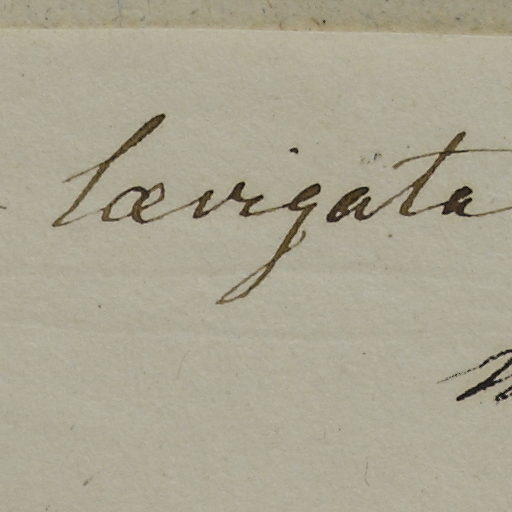 lævigata